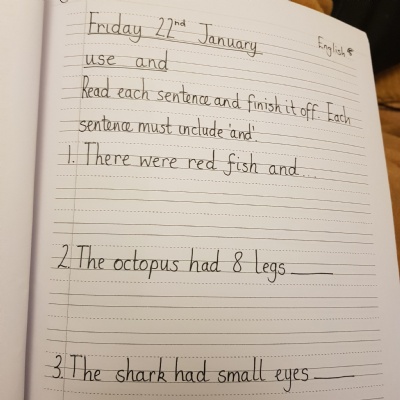 Friday 22nd January
English
use and
Read each sentence and finish it off. Each
sentence must include 'and'.
1. There were red fish and...
2. The octopus had 8 legs
3. The shark had small eyes